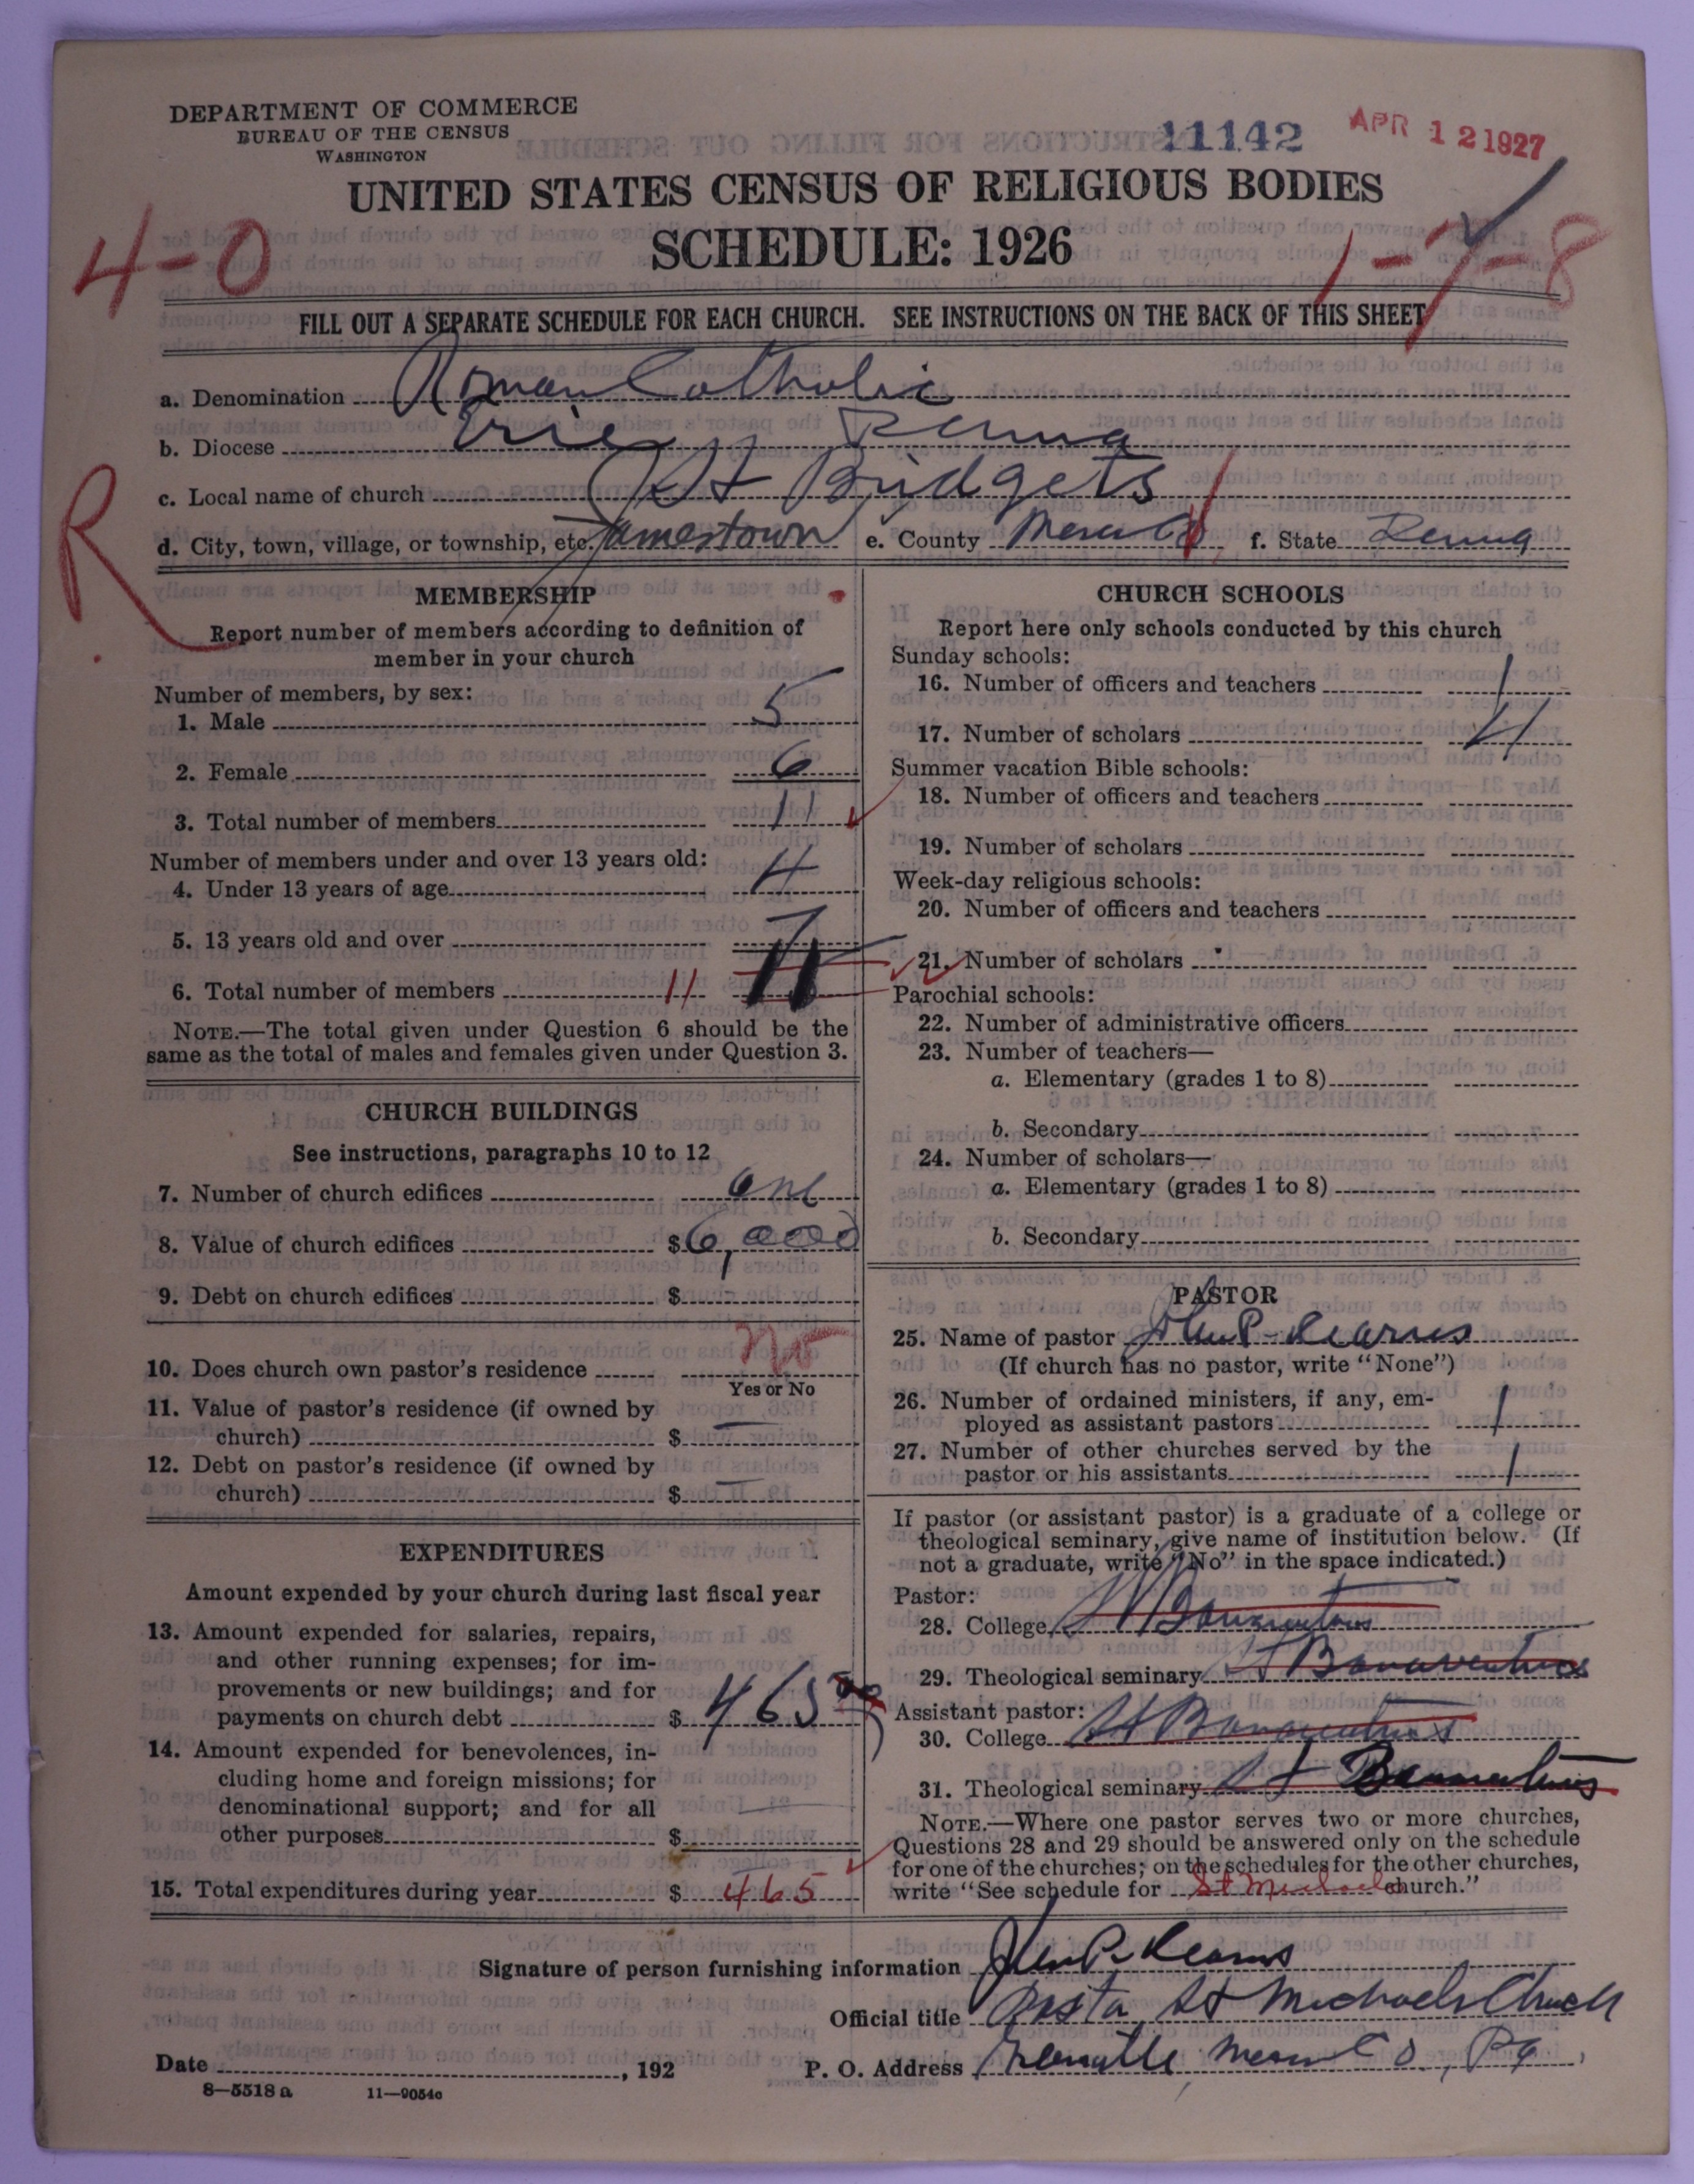 DEPARTMENT OF COMMERCE
BUREAU OF THE CENSUS
WASHINGTON
11142
APR 12 1927
UNITED STATES CENSUS OF RELIGIOUS BODIES
SCHEDULE: 1926
4-0
1-7-8
FILL OUT A SEPARATE SCHEDULE FOR EACH CHURCH. SEE INSTRUCTIONS ON THE BACK OF THIS SHEET
a. Denomination Roman Catholic
b. Diocese Erie Penna
R
c. Local name of church St Bridgets
d. City, town, village, or township, etc. Jamestown e. County Mercer Co f. State Penna
MEMBERSHIP
Report number of members according to definition of
member in your church
Number of members, by sex:
1. Male 5
2. Female 6
3. Total number of members 11
Number of members under and over 13 years old:
4. Under 13 years of age 4
5. 13 years old and over 7
6. Total number of members 11
NOTE.—The total given under Question 6 should be the
same as the total of males and females given under Question 3.
CHURCH BUILDINGS
See instructions, paragraphs 10 to 12
7. Number of church edifices one
8. Value of church edifices $6,000
9. Debt on church edifices $
10. Does church own pastor's residence No
Yes or No
11. Value of pastor's residence (if owned by
church) $ —
12. Debt on pastor's residence (if owned by
church) $ —
EXPENDITURES
Amount expended by your church during last fiscal year
13. Amount expended for salaries, repairs,
and other running expenses; for im-
provements or new buildings; and for
payments on church debt $ 465 00
14. Amount expended for benevolences, in-
cluding home and foreign missions; for
denominational support; and for all
other purposes $ —
15. Total expenditures during year $ 465
CHURCH SCHOOLS
Report here only schools conducted by this church
Sunday schools:
16. Number of officers and teachers 1
17. Number of scholars 4
Summer vacation Bible schools:
18. Number of officers and teachers
19. Number of scholars
Week-day religious schools:
20. Number of officers and teachers
21. Number of scholars
Parochial schools:
22. Number of administrative officers
23. Number of teachers—
a. Elementary (grades 1 to 8)
b. Secondary
24. Number of scholars—
a. Elementary (grades 1 to 8)
b. Secondary
PASTOR
25. Name of pastor John P. Kearns
(If church has no pastor, write "None")
26. Number of ordained ministers, if any, em-
ployed as assistant pastors 1
27. Number of other churches served by the
pastor or his assistants 1
If pastor (or assistant pastor) is a graduate of a college or
theological seminary, give name of institution below. (If
not a graduate, write "No" in the space indicated.)
Pastor:
28. College St Bonaventures
29. Theological seminary St Bonaventures
Assistant pastor:
30. College St Bonaventures
31. Theological seminary St Bonaventures
NOTE.—Where one pastor serves two or more churches,
Questions 28 and 29 should be answered only on the schedule
for one of the churches; on the schedules for the other churches,
write "See schedule for St Michaels church."
Signature of person furnishing information John P. Kearns
Official title Pastor St Michaels Church
Date , 192 P. O. Address Greenville Mercer Co, Pa
8—5518 a 11—9054c